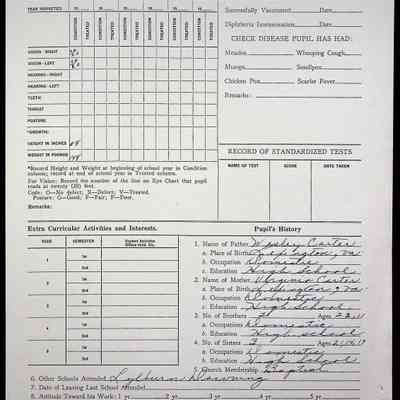 YEAR INSPECTED 19 19 19 19 19 19
CONDITION TREATED CONDITION TREATED CONDITION TREATED CONDITION TREATED CONDITION TREATED CONDITION TREATED
VISION - RIGHT
VISION - LEFT
HEARING - RIGHT
HEARING - LEFT
TEETH
THROAT
POSTURE
*GROWTH:
HEIGHT IN INCHES
WEIGHT IN POUNDS
*Record Height and Weight at beginning of school year in Condition
column; record at end of school year in Treated column.
For Vision: Record the number of the line on Eye Chart that pupil
reads at twenty (20) feet.
Code: O—No defect; X—Defect; V—Treated.
Posture: G—Good; F—Fair; P—Poor.
Remarks:
Successfully Vaccinated Date
Diphtheria Immunization Date
CHECK DISEASE PUPIL HAS HAD:
Measles Whooping Cough
Mumps Smallpox
Chicken Pox Scarlet Fever
Remarks:
RECORD OF STANDARDIZED TESTS
NAME OF TEST SCORE DATE TAKEN
Extra Curricular Activities and Interests.
YEAR SEMESTER
1 1st
2nd
2 1st
2nd
3 1st
2nd
4 1st
2nd
5 1st
2nd
Pupil's History
1. Name of Father Wesley Carter
a. Place of Birth Lexington, Va
b. Occupation Domestic
c. Education High School
2. Name of Mother Virginia Carter
a. Place of Birth Lexington, Va
b. Occupation Domestic
c. Education High School
3. No. of Brothers Ages
a. Occupation Domestic
b. Education High school
4. No. of Sisters 3 Ages
a. Occupation Domestic
b. Education High School
5. Church Membership Baptist
6. Other Schools Attended Lylburn Downing
7. Date of Leaving Last School
8. Attitude Toward his Work: 1 yr. 2 yr. 3 yr. 4 yr. 5 yr.